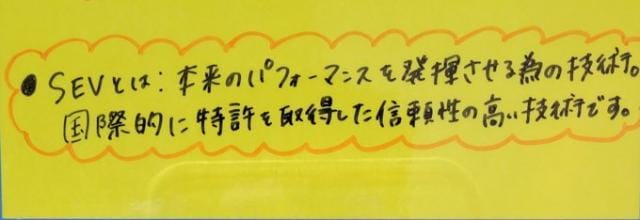 ●SEVとは:本来のパフォーマンスを発揮させる為の技術。
国際的に特許を取得した信頼性の高い技術です。